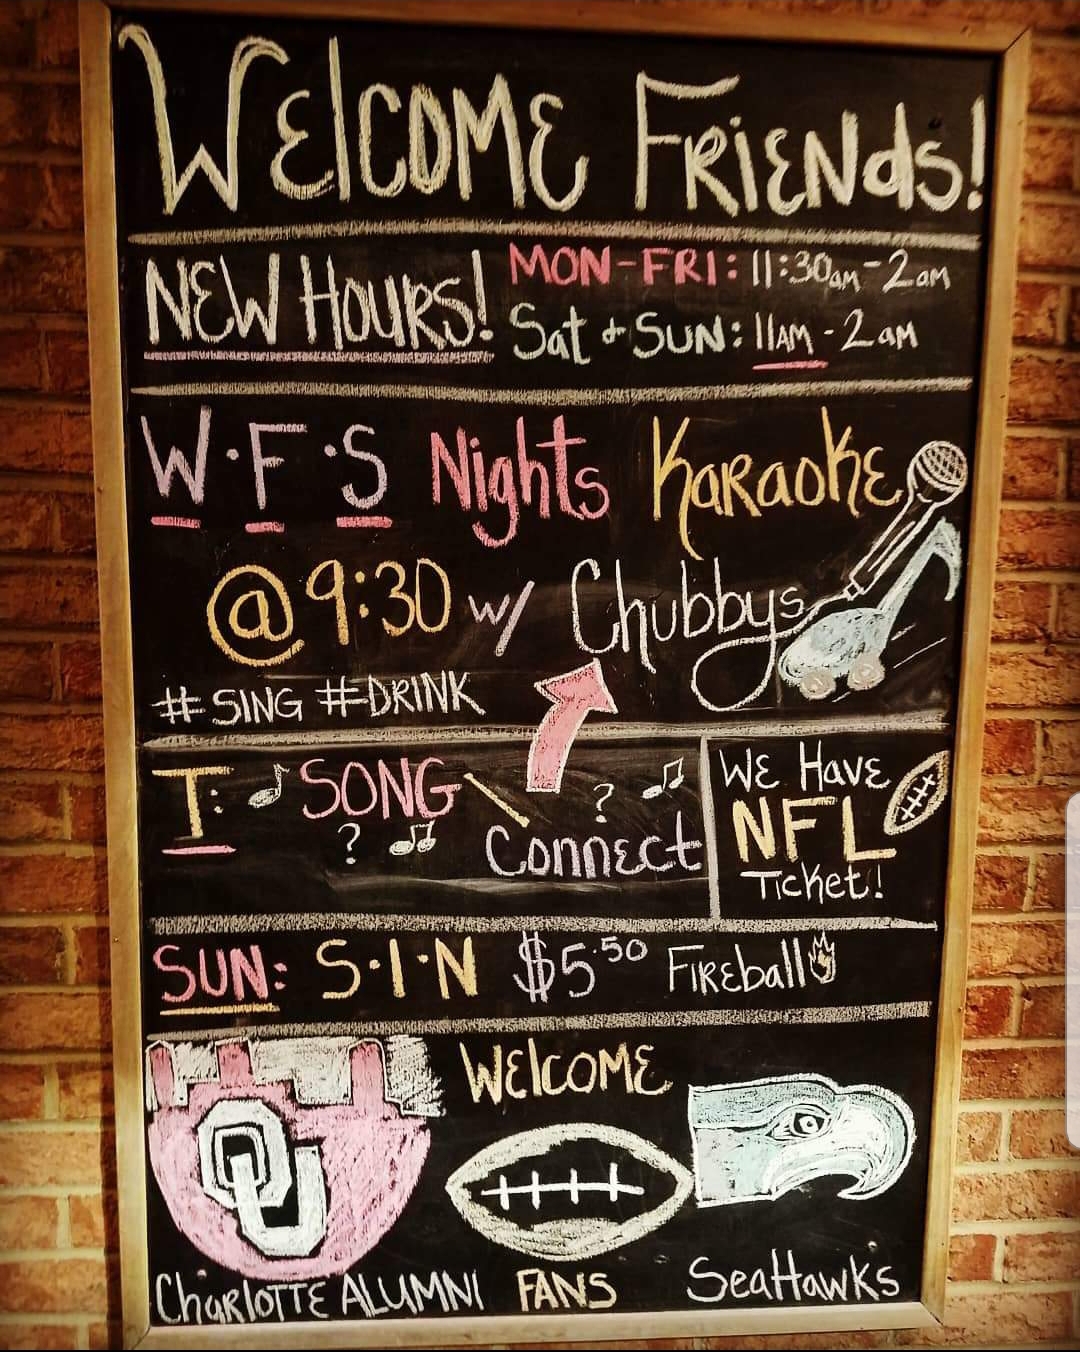 WElCOME FRiENds!
NEW HOURS! MON-FRI: 11:30am-2am
Sat + SUN: 11AM - 2am
W·F·S Nights KaRaoKE
@ 9:30 w/ Chubbys
#SING #DRINK
T: SONG
? ?
Connect
WE HavE
NFL
Ticket!
SUN: S·I·N $5.50 FIREball
WElCOME
OU
ChaRlOTTE ALUMNI FANS SeaHawks